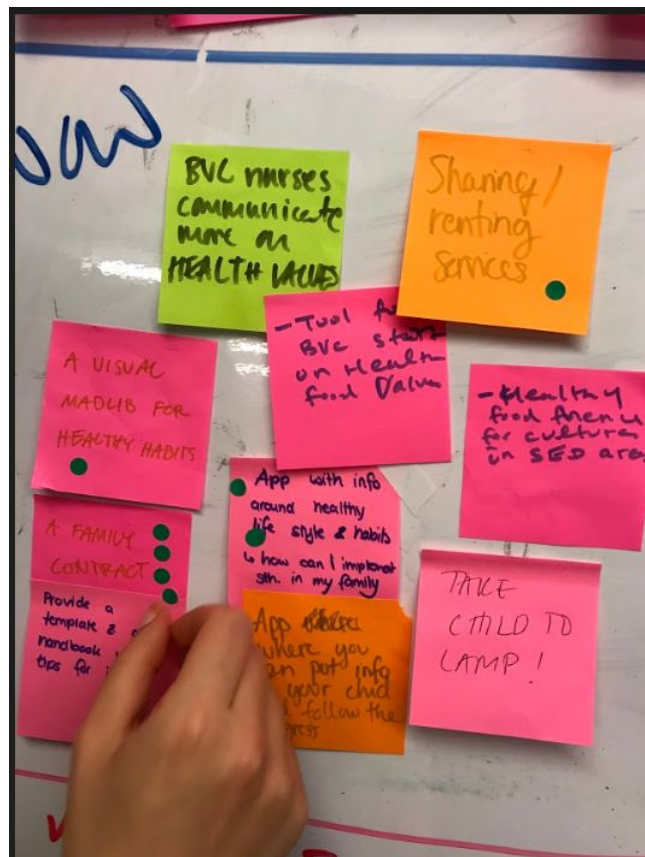 BVC nurses
communicate
more on
HEALTH VALUES
Sharing/
renting
services
- Tool
BVC start
on Health
food Values
A VISUAL
MADLIB FOR
HEALTHY HABITS
- Healthy
food
for cultures
in SED area
App with info
around healthy
life style & habits
↳ how can I implement
sth. in my family
A FAMILY
CONTRACT
Provide a
template &
handbook
tips for
App
where you
can put info
your chid
follow the
TAKE
CHILD TO
CAMP!